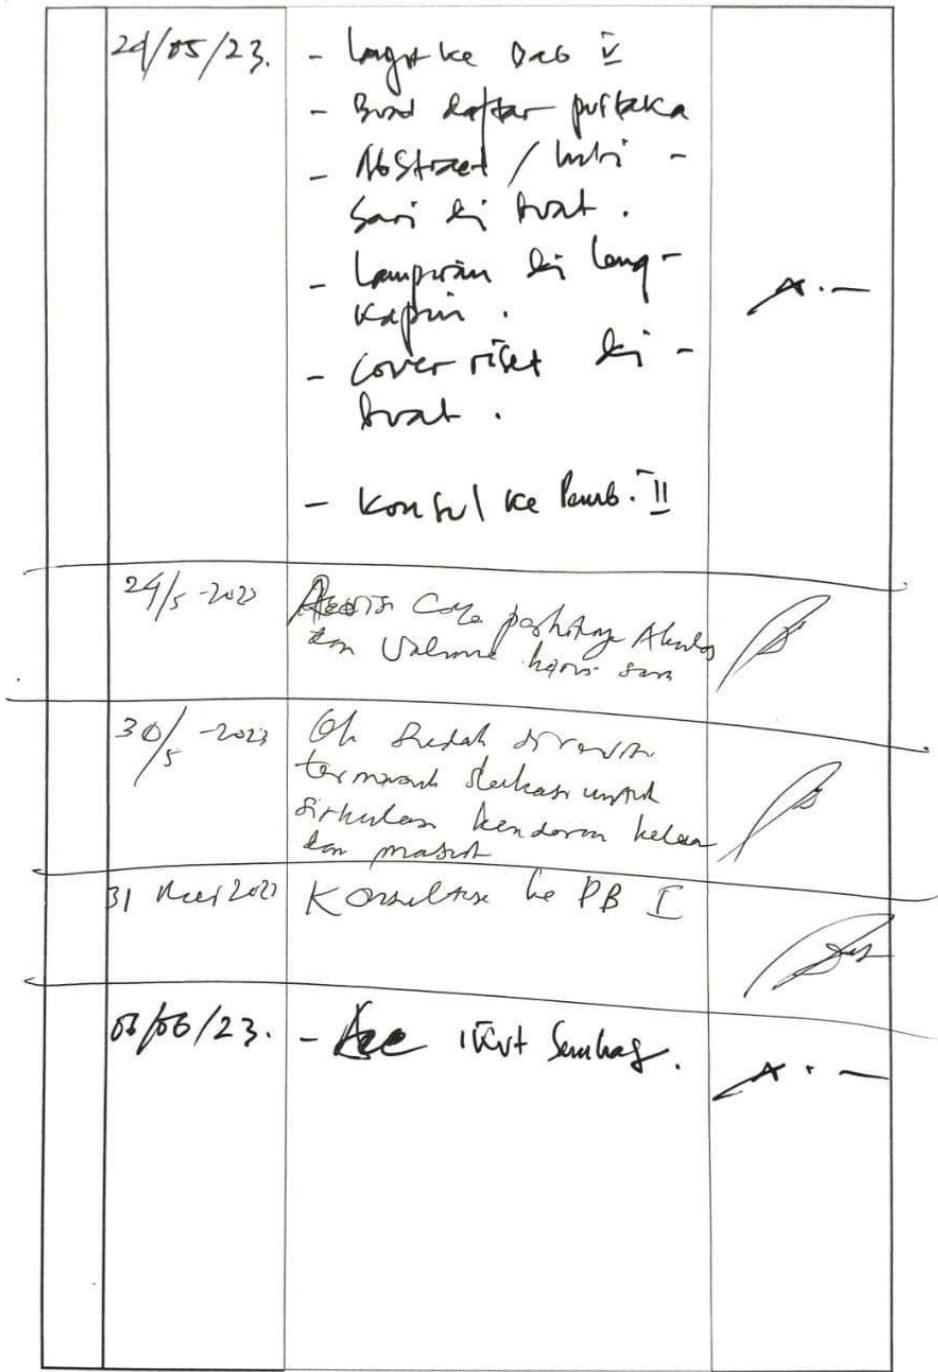 24/05/23.
- Lanjut ke Bab V
- Buat daftar pustaka
- Abstract / Inti -
Sari di buat.
- Lampiran di leng -
kapin.
- Cover riset di -
buat.
- Konsul ke Pemb. II
24/5 -2023
Revisi Cara perhitungan
dan Volume harus sama
30/5 -2023
Ok Sudah direvisi
termasuk untuk
sirkulasi kendaraan keluar
dan masuk
31 Mei 2023
Konsultasi ke PB I
/06/23.
- Acc ikut Semhas.